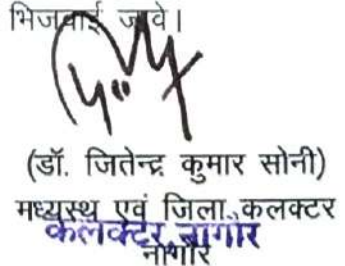 भिजवाई जावे।
(डॉ. जितेन्द्र कुमार सोनी)
मध्यस्थ एवं जिला कलक्टर
कलक्टर, नागौर
नागौर